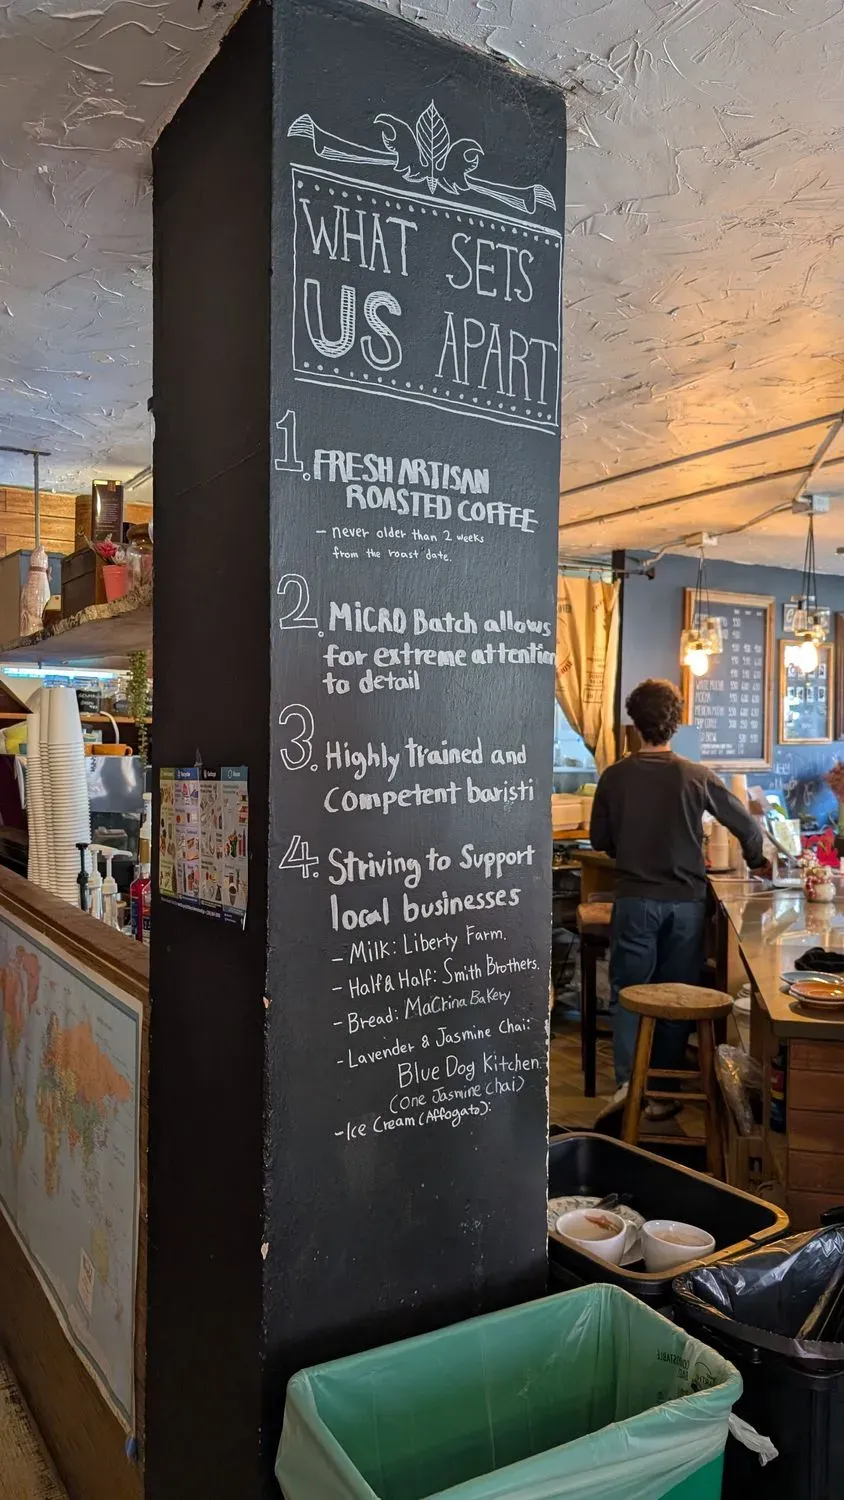 WHAT SETS
US APART
1. FRESH ARTISAN
ROASTED COFFEE
- never older than 2 weeks
from the roast date.
2. MiCRO Batch allows
for extreme attention
to detail
3. Highly trained and
Competent baristi
4. Striving to Support
local businesses
- Milk: Liberty Farm.
- Half & Half: Smith Brothers.
- Bread: MaCrina BaKery
- Lavender & Jasmine Chai:
Blue Dog Kitchen.
(one Jasmine chai)
- Ice Cream (Affogato):